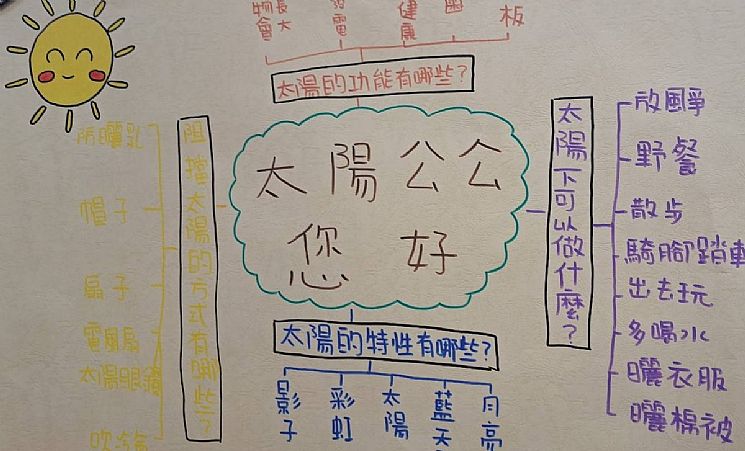 長大
健康
板
太陽的功能有哪些?
太陽公公
您好
阻擋太陽的方式有哪些?
防曬乳
帽子
扇子
電風扇
太陽眼鏡
太陽下可以做什麼?
放風箏
野餐
散步
騎腳踏車
出去玩
多喝水
曬衣服
曬棉被
太陽的特性有哪些?
影子
彩虹
太陽
藍天
月亮